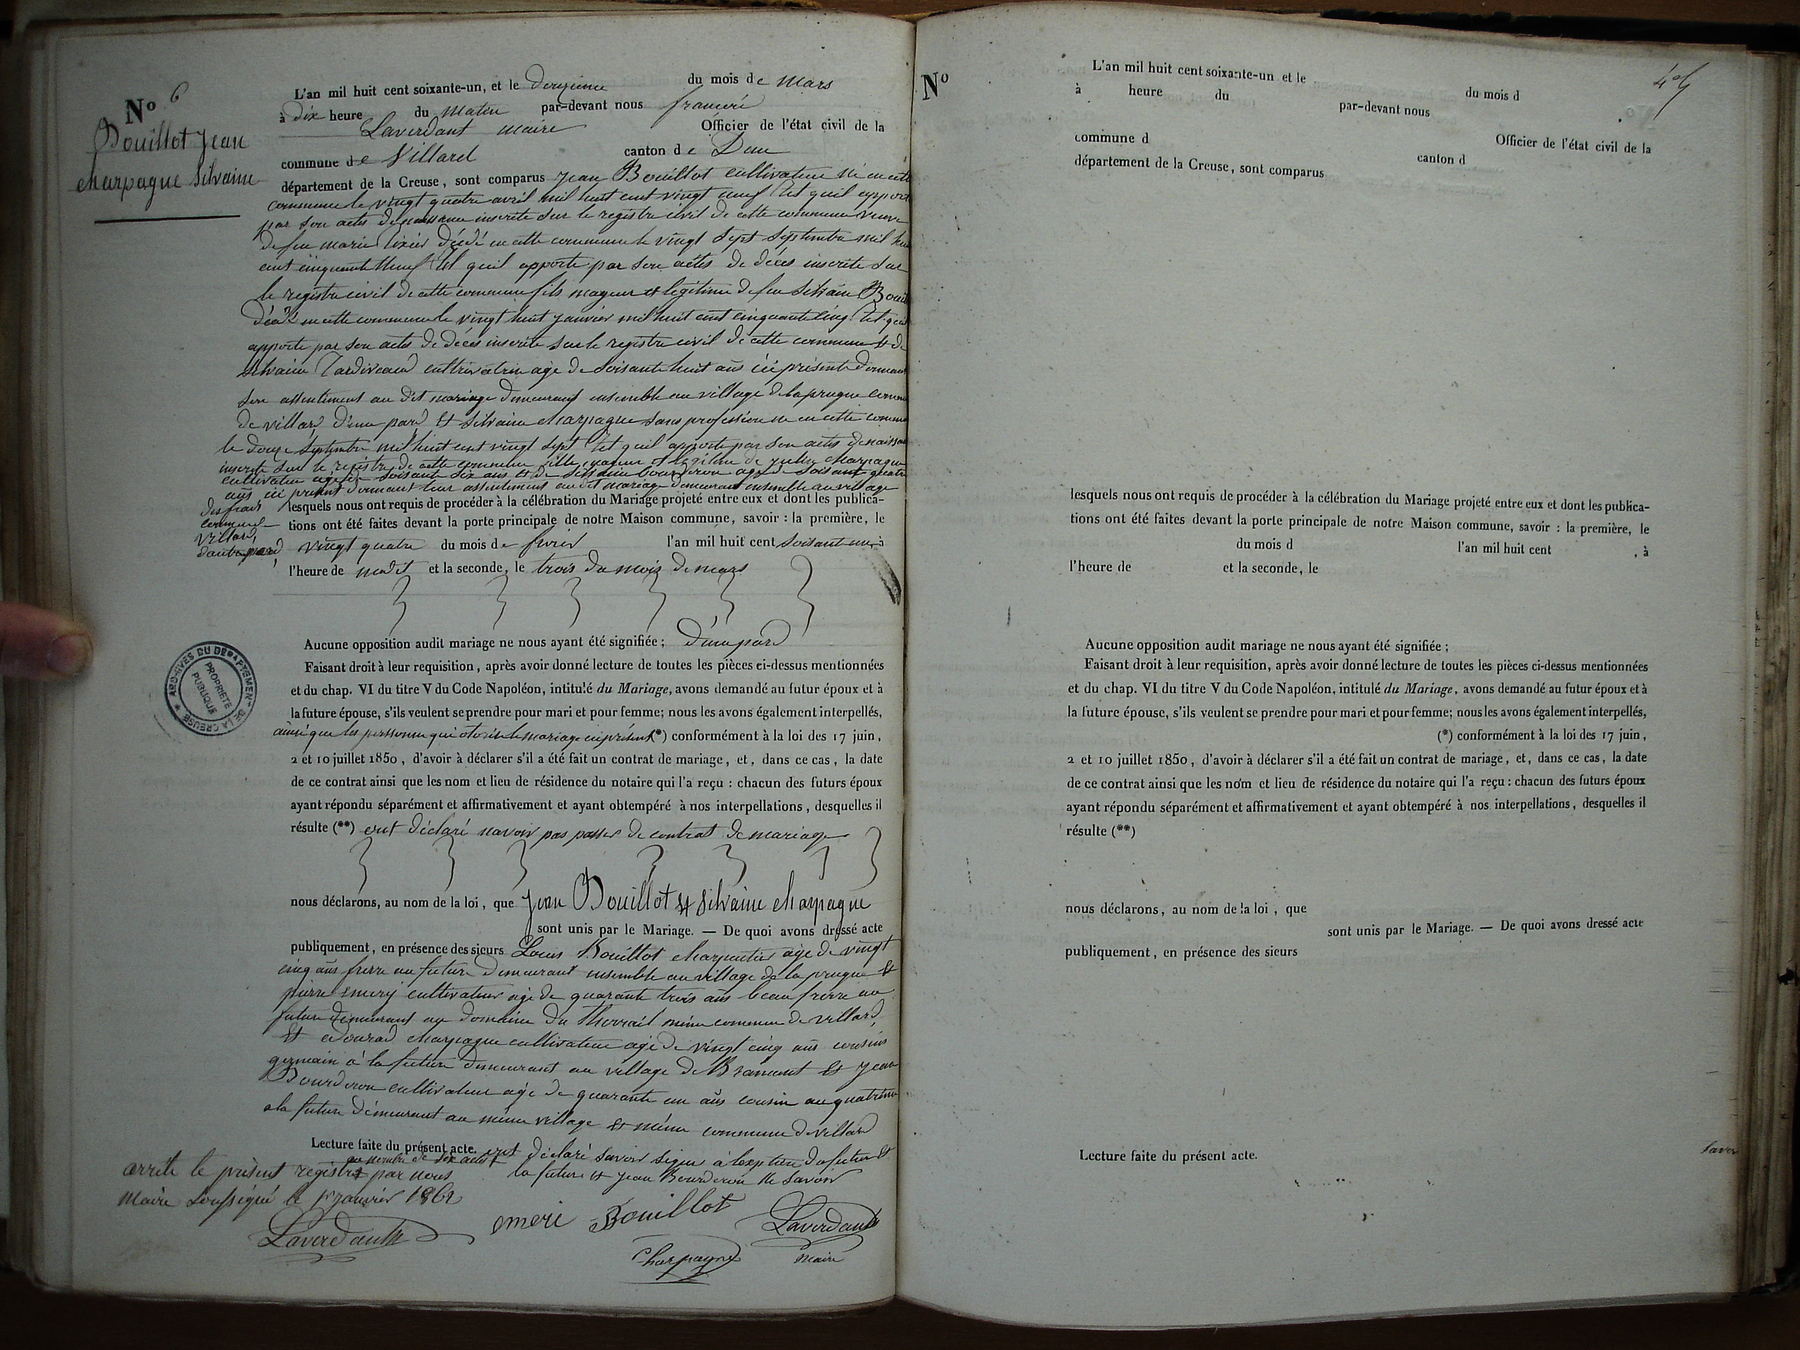 No 6
Bouillot Jean
charpagne Silvaine
L'an mil huit cent soixante-un, et le douzieme du mois de mars
à dix heure du matin par-devant nous
Laverdant maire Officier de l'état civil de la
commune de Villard canton de Dun
département de la Creuse, sont comparus Jean Bouillot cultivateur né en cette
commune le vingt quatre avril mil huit cent vingt neuf tel quil apport
par son actes de naissance inscrite sur le registre civil de cette commune veuve
de feu marie décédé en cette commune le vingt sept septembre mil hui
cent cinquante Neuf tel quil apporte par son actes de décès inscrite sur
le registre civil de cette commune fils mageur et légitime de feu Silvain Bouil
décédé en cette commune le vingt huit janvier mil huit cent cinquante cinq tel quil
apporte par son actes de décès inscrite sur le registre civil de cette commune et de
silvaine Tardiveaud cultivatrice age de soisante huit ans ici présente donnant
son assentiment au dit mariage demeurant ensemble au village de laprugne commu
de villard d'une pard Et Silvaine charpagne sans profession ne en cette commu
le douze Septembre mil huit cent vingt sept tel quil apporte par son actes de naissan
inscrite sur le registre de cette commune fille mageur et légitime de charpagne
cultivateur age de soisante dix ans et de Silvaine bourderon age de soisante quatre
ans ici présent donnant leur assentiment au dit mariage demeurant ensemble au village
des
commune
villard
dautre pard
lesquels nous ont requis de procéder à la célébration du Mariage projeté entre eux et dont les publica-
tions ont été faites devant la porte principale de notre Maison commune, savoir : la première, le
vingt quatre du mois de fevrier l'an mil huit cent soisant un, à
l'heure de et la seconde, le trois du mois de mars
Aucune opposition audit mariage ne nous ayant été signifiée ; d'une pard
Faisant droit à leur requisition, après avoir donné lecture de toutes les pièces ci-dessus mentionnées
et du chap. VI du titre V du Code Napoléon, intitulé du Mariage, avons demandé au futur époux et à
la future épouse, s'ils veulent se prendre pour mari et pour femme; nous les avons également interpellés,
ainsi que les personne qui otorise le mariage ici présent (*) conformément à la loi des 17 juin,
2 et 10 juillet 1850, d'avoir à déclarer s'il a été fait un contrat de mariage, et, dans ce cas, la date
de ce contrat ainsi que les nom et lieu de résidence du notaire qui l'a reçu : chacun des futurs époux
ayant répondu séparément et affirmativement et ayant obtempéré à nos interpellations, desquelles il
résulte (**) ont déclaré navoir pas passer de contrat de mariage
nous déclarons, au nom de la loi, que Jean Bouillot et Silvaine charpagne
sont unis par le Mariage. — De quoi avons dressé acte
publiquement, en présence des sieurs Louis Bouillot charpentier age de vingt
cinq ans frere au future demeurant ensemble au village de la prugne Et
pierre emery cultivateur age de quarante trois ans beau frere au
future demeurant au domaine du même commune de villard
Et edouard charpagne cultivateur age de vingt cinq ans cousins
germain à la future demeurant au village de Et Jean
Bourderon cultivateur age de quarante un ans cousin au quatrieme
a la future demeurant au même village et même commune de villard
Lecture faite du présent acte. ont déclaré savoir signer à lexption du futur et
la future et Jean Bourderon Ne savoir
arrêté le présent registre au nombre de six actes par nous
Maire soussigné le 1er janvier 1862
Laverdant
emeri Bouillot Laverdant
Charpagne maire
ARCHIVES DU DEPARTEMENT DE LA CREUSE
PROPRIETE PUBLIQUE
No
L'an mil huit cent soixante-un et le du mois d
à heure du par-devant nous
Officier de l'état civil de la
commune d canton d
département de la Creuse, sont comparus
lesquels nous ont requis de procéder à la célébration du Mariage projeté entre eux et dont les publica-
tions ont été faites devant la porte principale de notre Maison commune, savoir : la première, le
du mois d l'an mil huit cent , à
l'heure de et la seconde, le
Aucune opposition audit mariage ne nous ayant été signifiée ;
Faisant droit à leur requisition, après avoir donné lecture de toutes les pièces ci-dessus mentionnées
et du chap. VI du titre V du Code Napoléon, intitulé du Mariage, avons demandé au futur époux et à
la future épouse, s'ils veulent se prendre pour mari et pour femme; nous les avons également interpellés,
(*) conformément à la loi des 17 juin,
2 et 10 juillet 1850, d'avoir à déclarer s'il a été fait un contrat de mariage, et, dans ce cas, la date
de ce contrat ainsi que les nom et lieu de résidence du notaire qui l'a reçu : chacun des futurs époux
ayant répondu séparément et affirmativement et ayant obtempéré à nos interpellations, desquelles il
résulte (**)
nous déclarons, au nom de la loi, que
sont unis par le Mariage. — De quoi avons dressé acte
publiquement, en présence des sieurs
Lecture faite du présent acte.